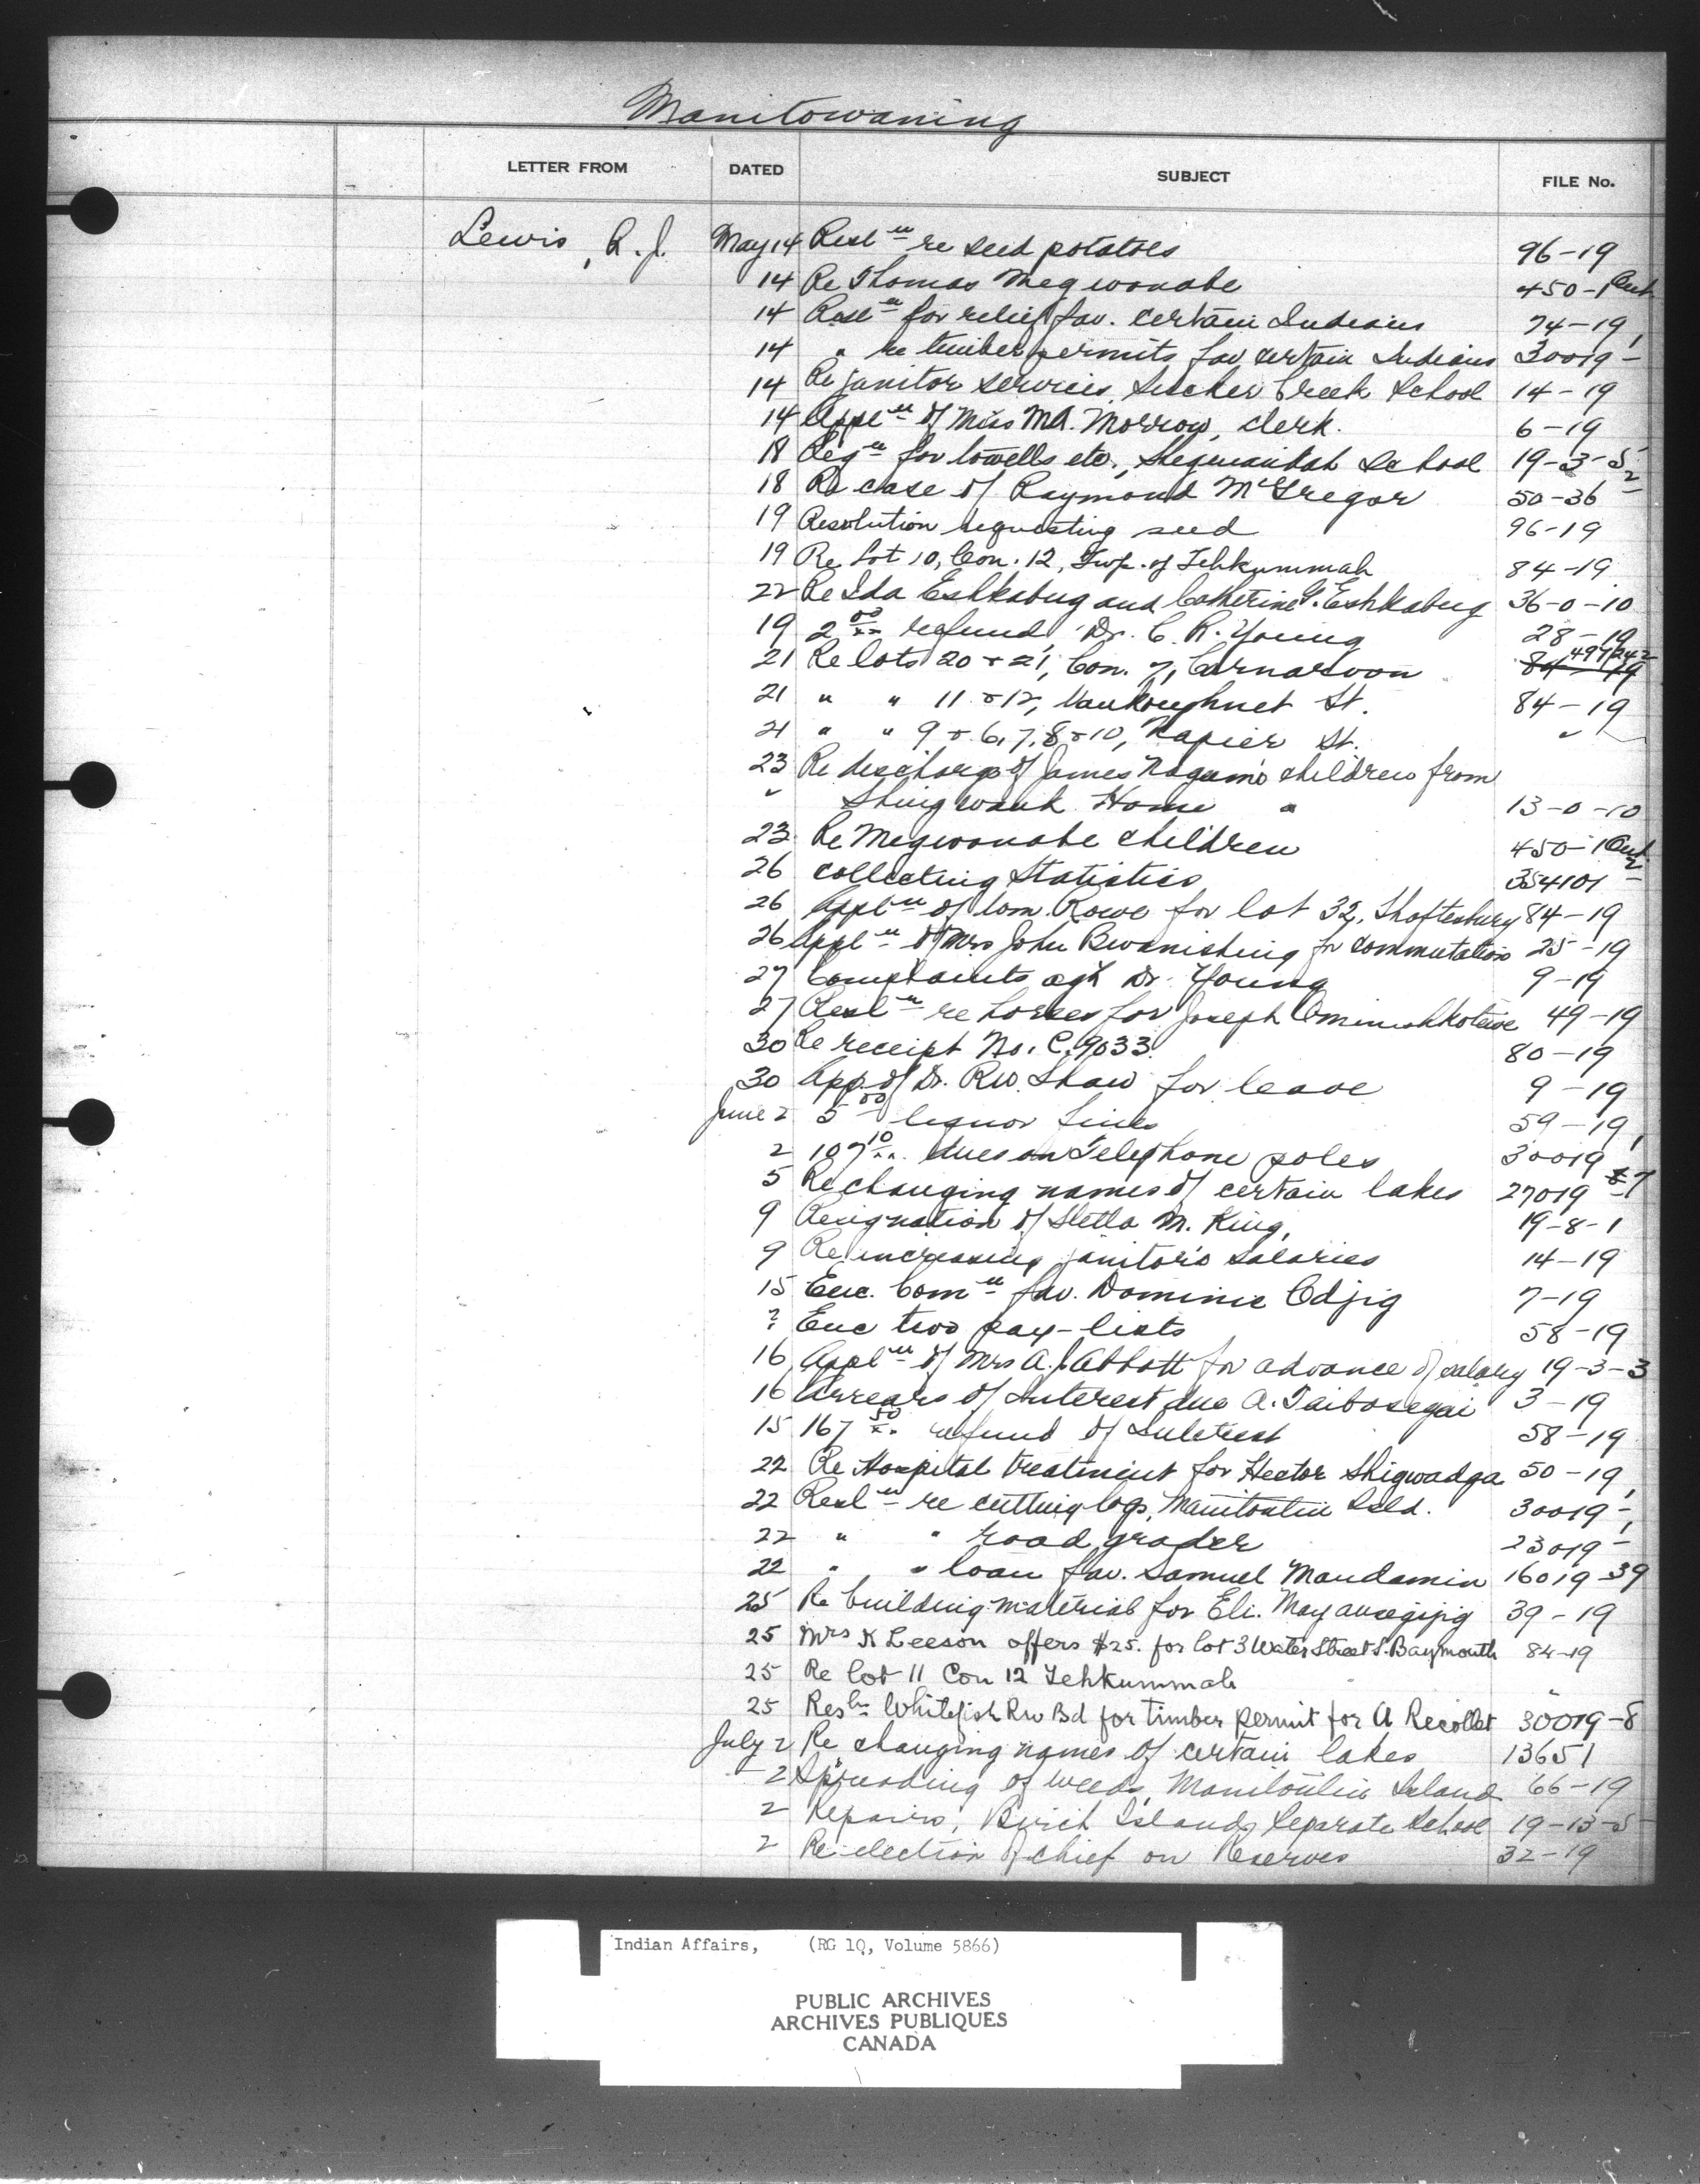 Manitowaning
LETTER FROM DATED SUBJECT FILE No.
Lewis, R. J. May 14 Resl'n re seed potatoes 96-19
14 Re Thomas Megwonabe 450-1 Ont
14 Resl'n for relief fav. certain Indians 74-19
14 " re timber permits fav certain Indians 30019-1
14 Re janitor services, Sucker Creek School 14-19
14 Appl'n of Miss M.A. Morrow, clerk. 6-19
18 Req'n for towells etc., Sheguiandah School 19-3-5
18 Re case of Raymond McGregor 50-36-2
19 Resolution requesting seed 96-19
19 Re Lot 10, Con. 12, Twp. of Tehkummah 84-19
22 Re Ida Eshkabug and Catherine G. Eshkabug 36-0-10
19 2 00/xx refund, Dr. C. R. Young 28-19
21 Re lots 20 & 21, Con. 7, Carnarvon 84-19 497242
21 " " 11 & 12, Vankoughnet St. 84-19
21 " " 9 & 6, 7, 8 & 10, Napier St. "
23 Re discharge of James Nagam's children from
" Shingwauk Home " 13-0-10
23 Re Megwonabe children 450-1 Ont
26 collecting Statistics 354101-2
26 Appl'n of Wm. Rowe for lot 32, Shaftesbury 84-19
26 Appl'n of Mrs John Bwanishing for commutation 25-19
27 Complaints agst Dr. Young 9-19
27 Resl'n re horses for Joseph 49-19
30 Re receipt No. C.9033. 80-19
30 App. of Dr. R.W. Shaw for leave 9-19
June 2 5 00 liquor fines 59-19
2 107 10/xx dues on Telephone poles 30019-1
5 Re changing names of certain lakes 27019-7
9 Resignation of Stella M. King, 19-8-1
9 Re increasing janitor's salaries 14-19
15 Enc. Com'n fav. Dominic Odjig 7-19
? Enc two pay-lists 58-19
16 Appl'n of Mrs A. J. Abbott for advance of salary 19-3-3
16 Arrears of Interest due A. Taibosegai 3-19
15 167 50/xx refund of Interest 58-19
22 Re Hospital treatment for Hector Shigwadga 50-19
22 Resl'n re cutting logs, Manitoulin Isld. 30019-1
22 " " road grader 23019-1
22 " " loan fav. Samuel Mandamin 16019-39
25 Re building material for Eli. 39-19
25 Mrs K Leeson offers $25. for lot 3 Water Street S. Baymouth 84-19
25 Re lot 11 Con 12 Tehkummah "
25 Resl'n Whitefish Riv Bd for timber permit for A Recollet 30019-8
July 2 Re changing names of certain lakes 13651
2 Spreading of weeds, Manitoulin Island 66-19
2 Repairs, Birch Island, Separate School 19-13-5
2 Re election of chief on Reserves 32-19
Indian Affairs, (RG 10, Volume 5866)
PUBLIC ARCHIVES
ARCHIVES PUBLIQUES
CANADA